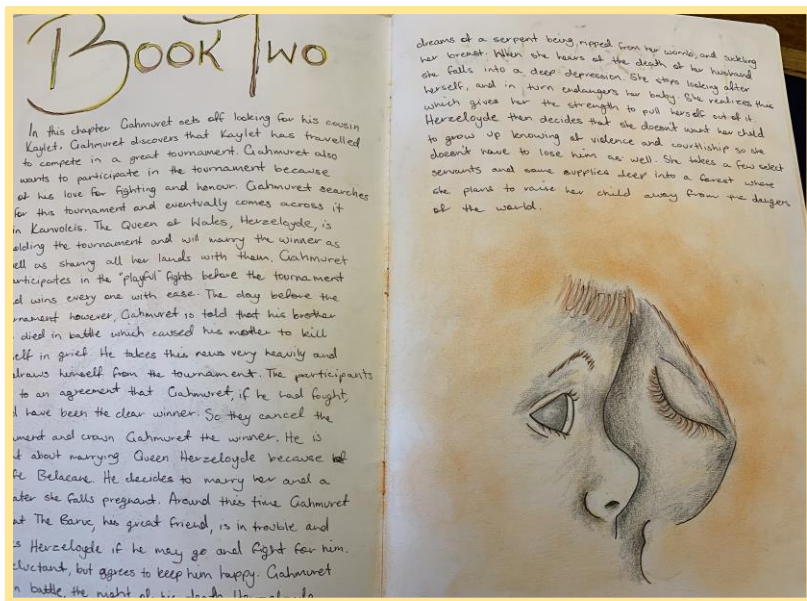 Book Two
In this chapter Gahmuret sets off looking for his cousin
Kaylet. Gahmuret discovers that Kaylet has travelled
to compete in a great tournament. Gahmuret also
wants to participate in the tournament because
of his love for fighting and honour. Gahmuret searches
for this tournament and eventually comes across it
in Kanvoleis. The Queen of Wales, Herzeloyde, is
olding the tournament and will marry the winner as
ell as sharing all her lands with them. Gahmuret
articipates in the "playful" fights before the tournament
d wins every one with ease. The day before the
rnament however, Gahmuret is told that his brother
died in battle which caused his mother to kill
elf in grief. He takes this news very heavily and
draws himself from the tournament. The participants
to an agreement that Gahmuret, if he had fought,
d have been the clear winner. So they cancel the
ament and crown Gahmuret the winner. He is
t about marrying Queen Herzeloyde because of
fe Belacane. He decides to marry her and a
ater she falls pregnant. Around this time Gahmuret
at The Baruc, his great friend, is in trouble and
s Herzeloyde if he may go and fight for him.
eluctant, but agrees to keep him happy. Gahmuret
n battle, the night of his death Herzeloyde
dreams of a serpent being ripped from her womb, and suckling
her breast. When she hears of the death of her husband
she falls into a deep depression. She stops looking after
herself, and in turn endangers her baby. She realizes this
which gives her the strength to pull herself out of it.
Herzeloyde then decides that she doesn't want her child
to grow up knowing of violence and courtliship so she
doesn't have to lose him as well. She takes a few select
servants and some supplies deep into a forest where
she plans to raise her child away from the dangers
of the world.